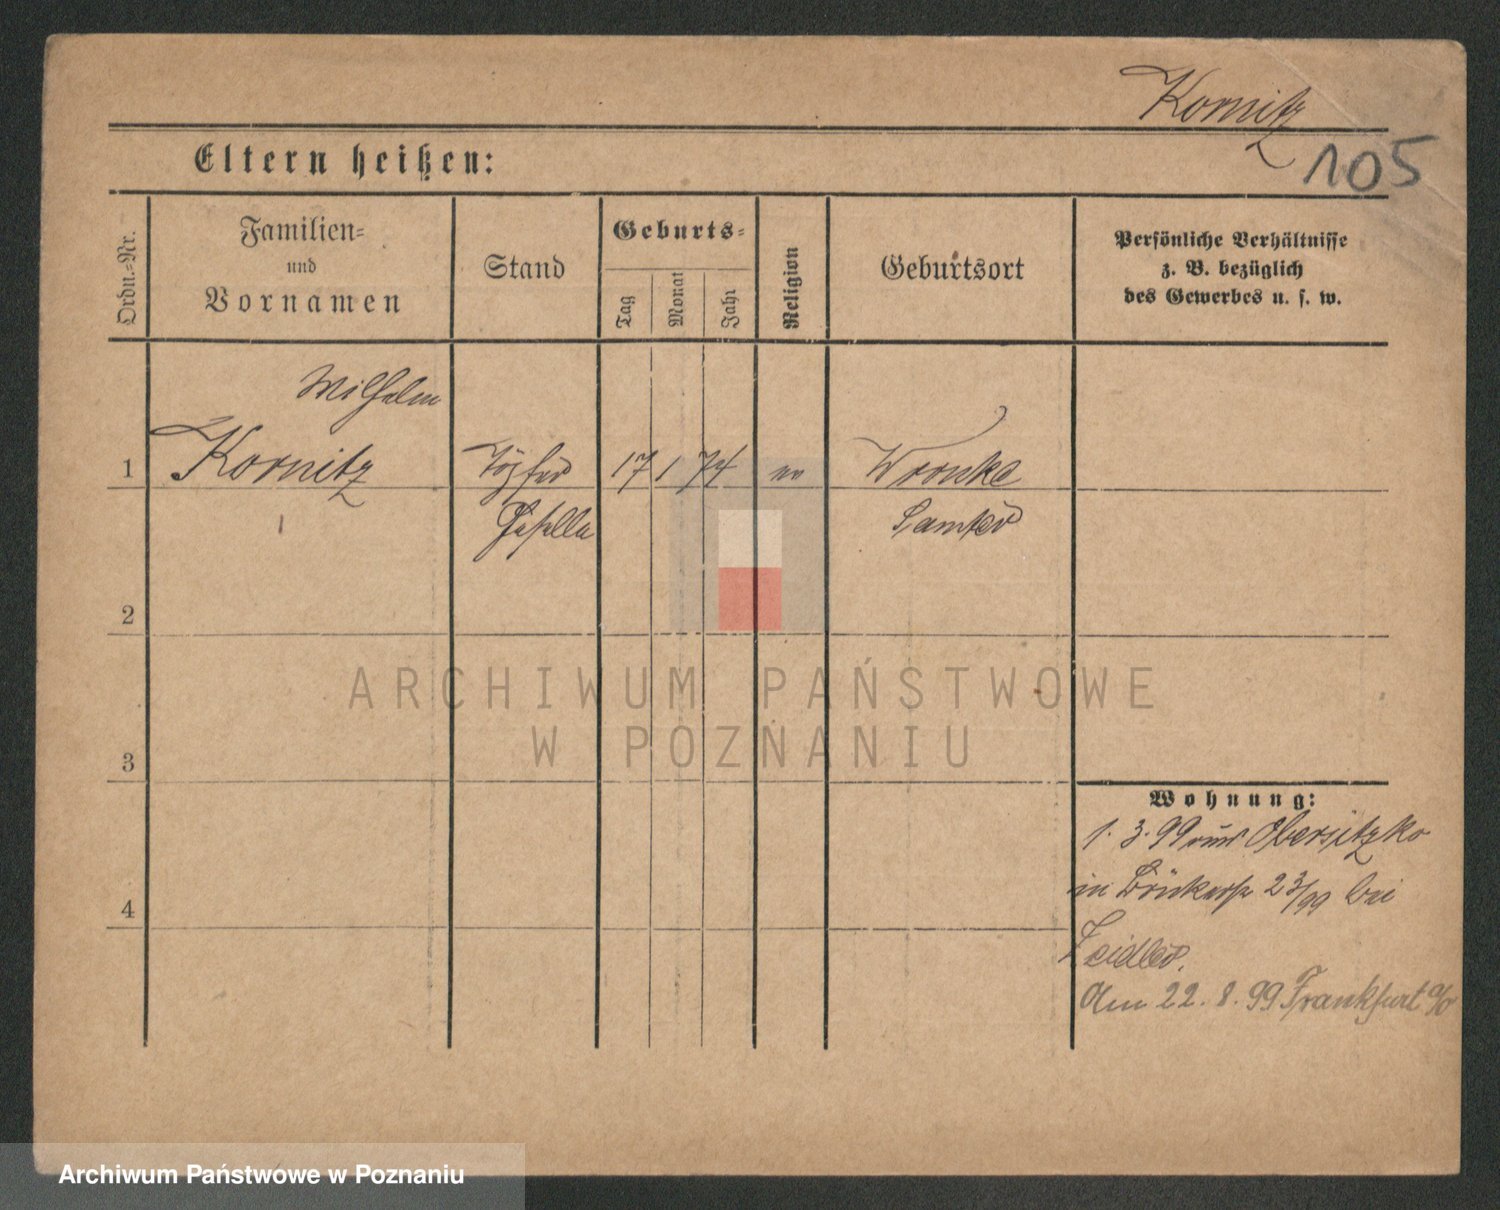 Kornitz
105
Eltern heißen:
Ordn.-Nr.
Familien-
und
Vornamen
Stand
Geburts-
Tag
Monat
Jahr
Religion
Geburtsort
Persönliche Verhältnisse
z. B. bezüglich
des Gewerbes u. s. w.
Wilhelm
1 Kornitz Töpfer 17 1 74 ev Wronke
Geselle Samter
2
3
4
ARCHIWUM PAŃSTWOWE
W POZNANIU
Wohnung:
1. 3. 99 aus Obersitzko
in 23/99 bei
Zeidler.
Am 22. 8. 99 Frankfurt a/o
Archiwum Państwowe w Poznaniu